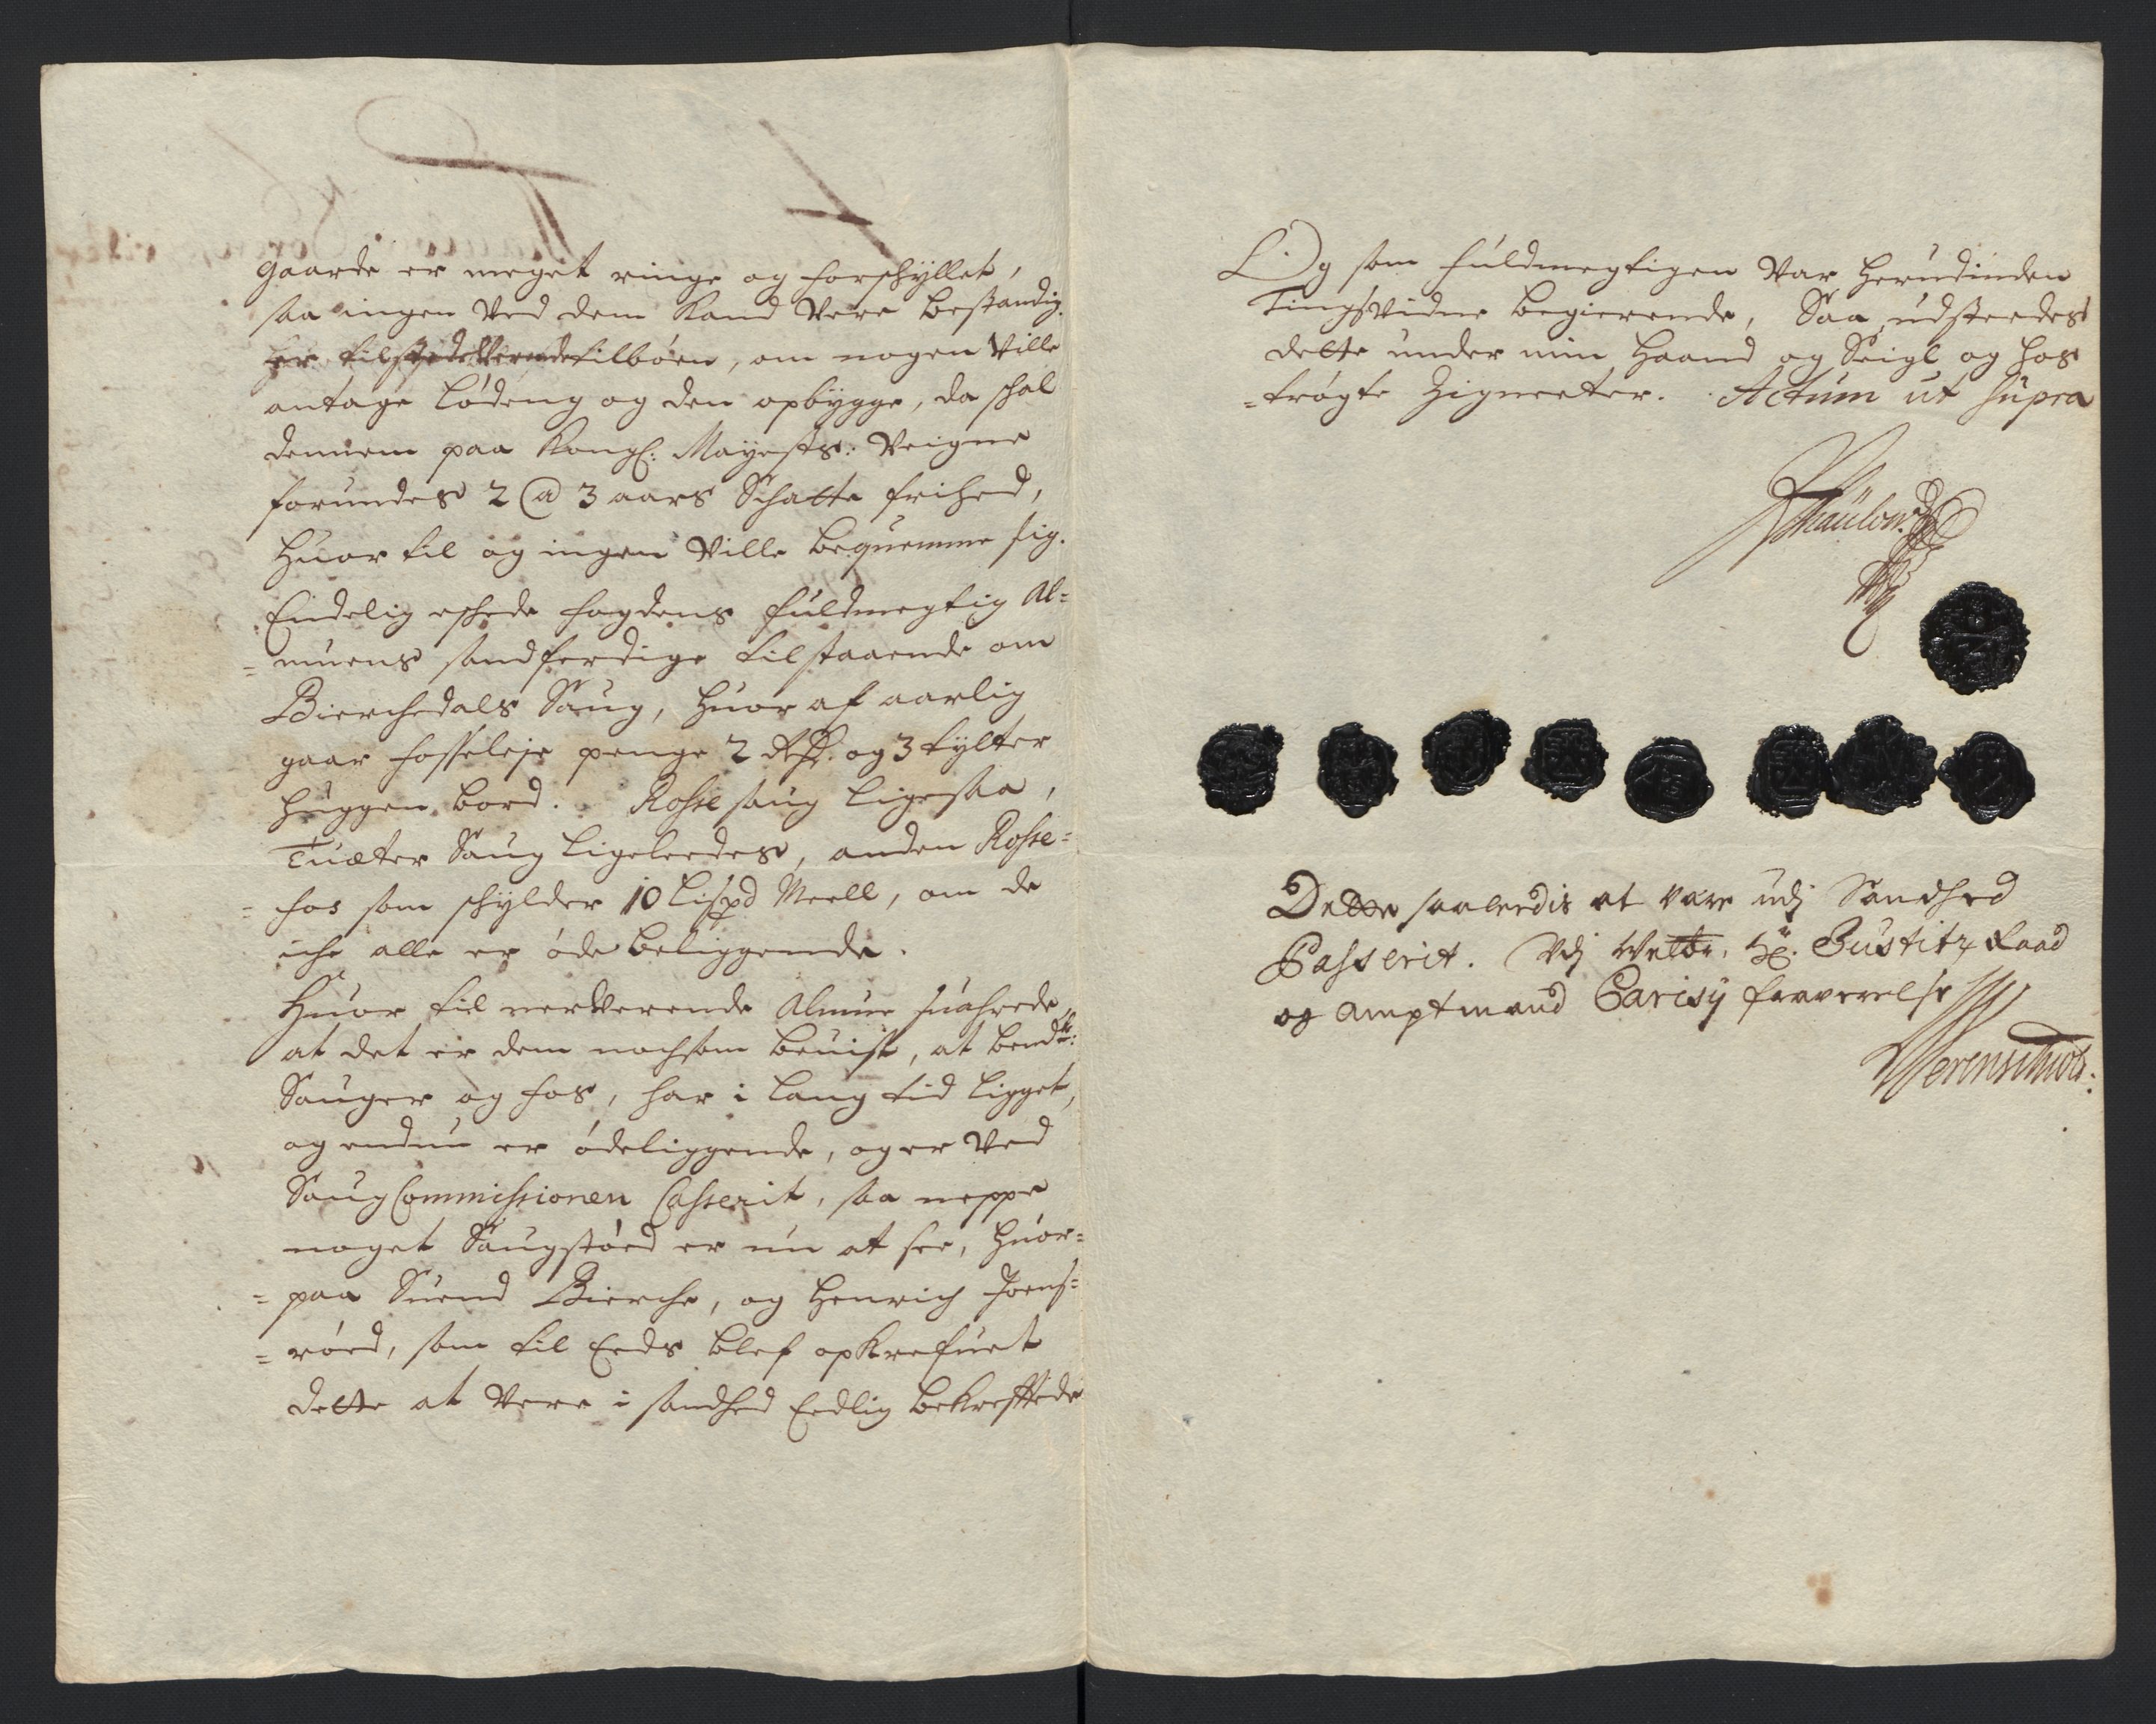 gaarde er meget ringe og forschyllet,
saa ingen Ved dem Kand Vere bestandig.
tilbören, om nogen Ville
antage Lödeng og den opbygge, da schal
dennem paa Kongl: Mayests: Veigne
forundes 2 @ 3 aars Schatte frihed,
Huor til og ingen Ville bequemme sig.
Endelig eschede fogdens fuldmegtig Al=
=muens sandferdige tilstaaende om
Bierchedals Saug, huor af aarlig
gaar fosseleje penge 2 Rdr. og 3 tylter
huggen bord. Rosse saug ligesaa,
Tuæter Saug ligeleedes, anden Rosse=
=fos som schylder 10 Lispd Meell, om de
iche alle er öde beliggende.
Huor til nerVerende Almue suahrede
at det er dem nochsom beuist, at bemdte:
Sauger og fos, har i lang tid ligget,
og endnu er ödeliggende, og er Ved
Saug Commissionen Casserit, saa neppe
noget Saugstöed er nu at see, huor=
=paa Suend Bierche, og Henrich Joens=
=röed, som til Eeds blef opkrefuet
dette at Vere i sandhed Eedlig bekreftede
Og som fuldmegtigen Var herudinden
Tingsvidne begierende, Saa udsteedes
dette under min Haand og Seigl og hos
=trögte Zigneeter. Actum ut supra
Dette saaleedis at være udj Sandhed
Passerit. Udj Welbr. Hr. Justitz Raad
og Amptmand Parisy fraverelse
Werenschiold.